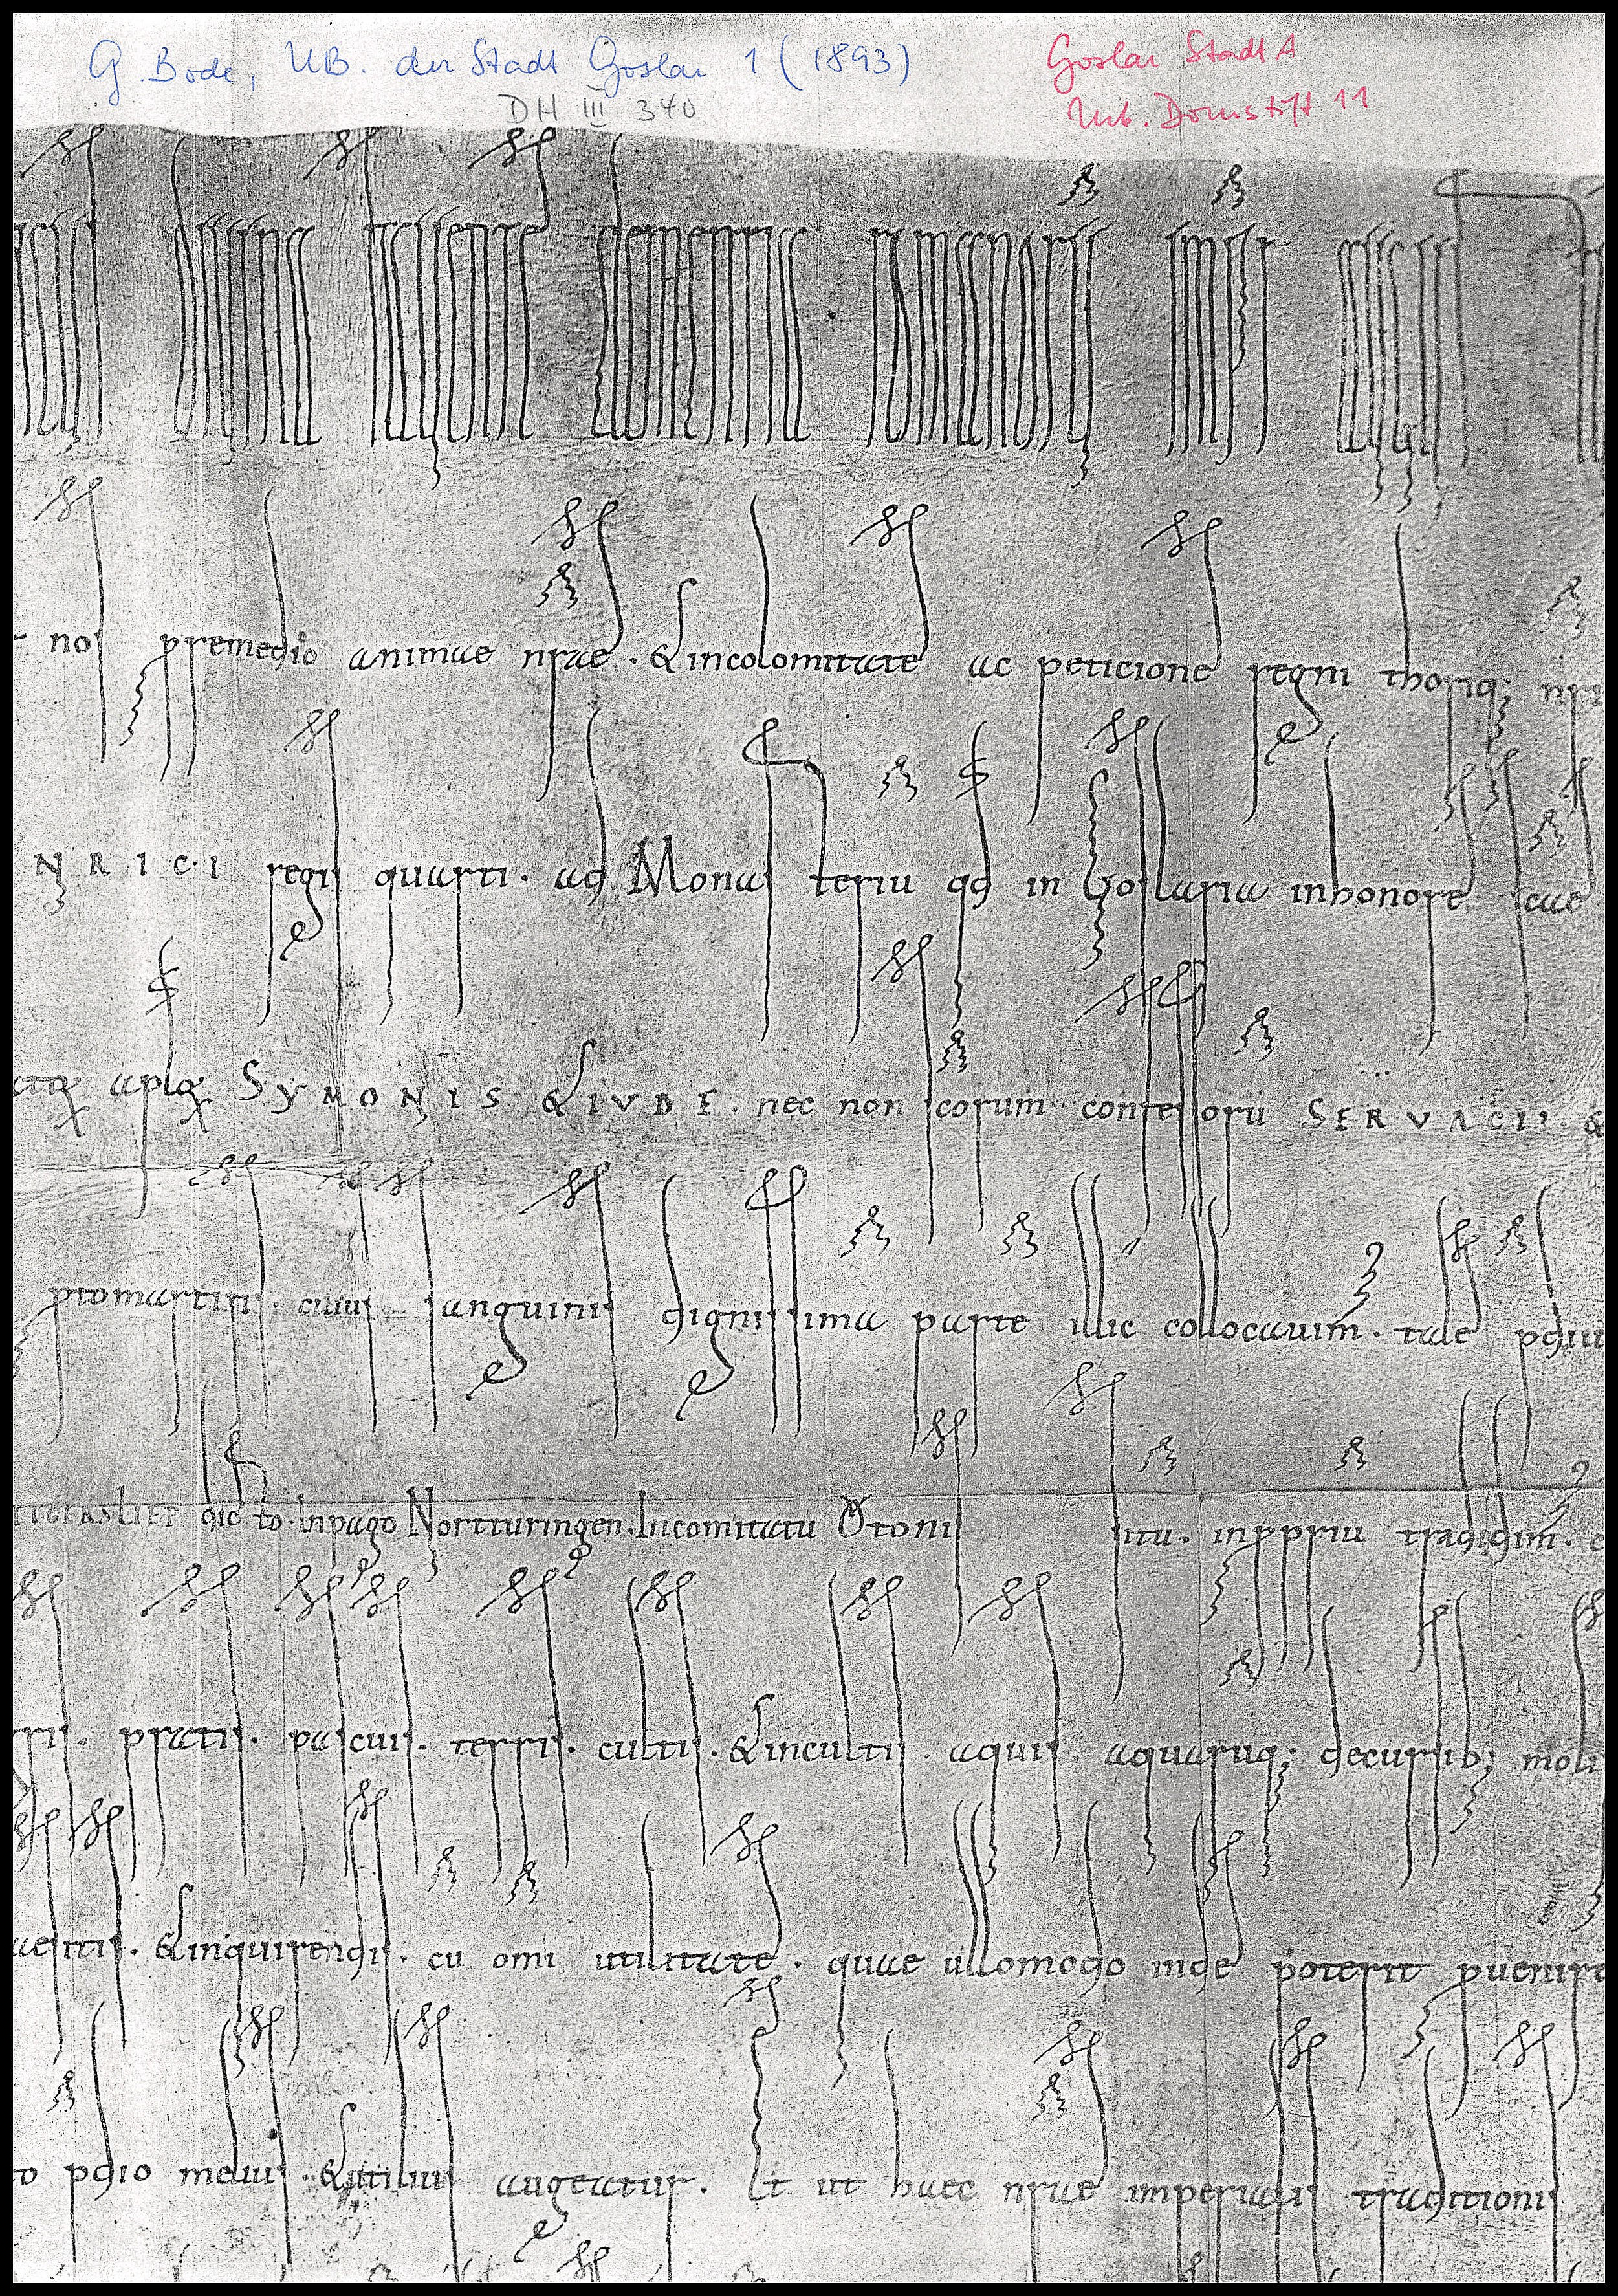 G. Bode, UB. der Stadt Goslar 1 (1893)
Goslar Stadt A
DH III 340
Urk. Domstift 11
divina favente clementia romanorum imperator
nos premedio animae nrae. & incolomitate ac peticione regni thoriq; nri
NRICI regis quarti. ad Monasteriu qd in Goslaria inhonore scae
apłoꝝ SYMONIS & IVDE. nec non scorum confessoru SERVACII. &
ptomartiris. cuius sanguinis dignissima parte illic collocauim. tale pdiu
dicto. Inpago Nortturingen. Incomitatu Ottonis situ. inpppriu tradidim.
pratis. pascuis. terris. cultis. & incultis. aquis. aquaruq; decursib; moli
quaesitis. & inquirendis. cu omi utilitate. quae ullomodo inde poterit puenire
pdio melius & utilius augeatur. Et ut haec nrae imperialis traditionis